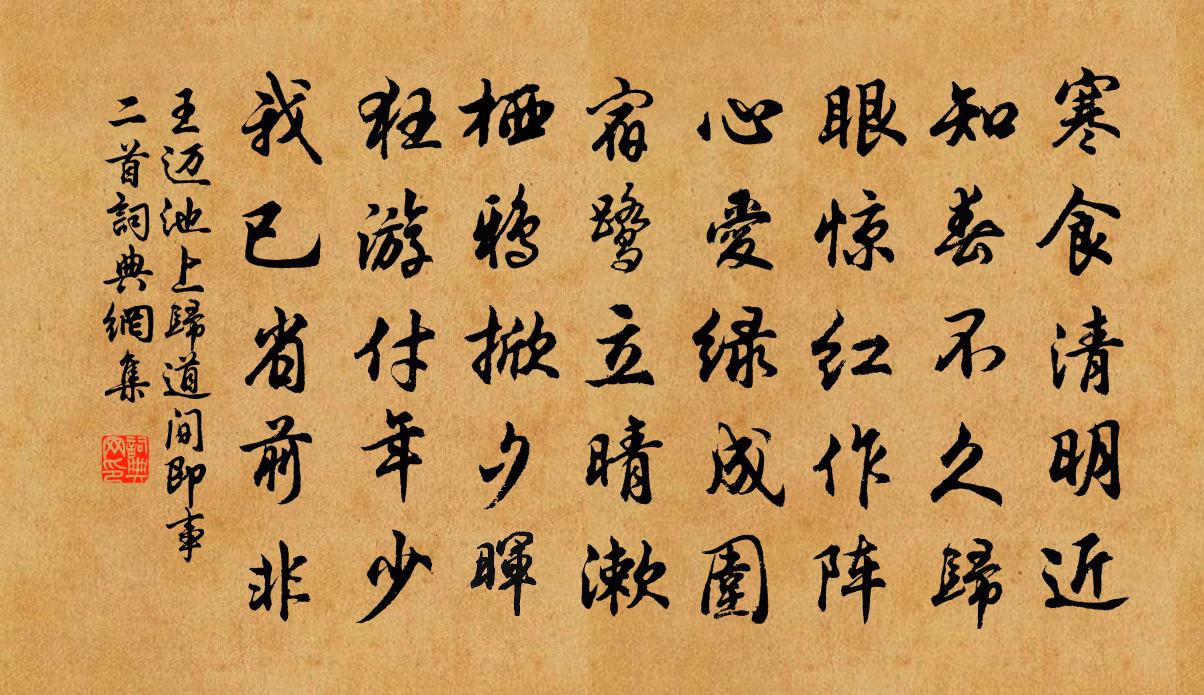 寒食清明近
知春不久歸
眼惊红作阵
心愛绿成圍
宿鹭立晴漱
栖鸦掀夕暉
狂游付年少
我已省前非
王迈池上歸道间即事
二首詞典網集
詞典网印